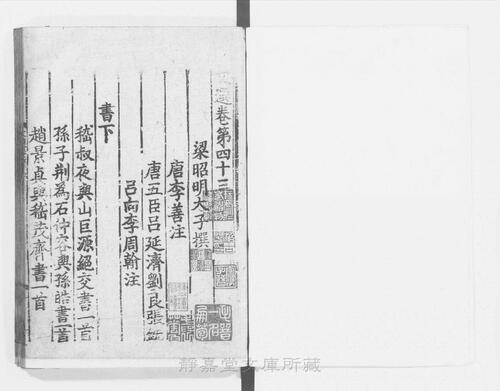 選卷第四十三
梁昭明太子撰
唐李善注
唐五臣吕延濟劉良張銑
吕向李周翰注
書下
嵇叔夜與山巨源絕交書一首
孫子荆為石仲容與孫皓書一首
趙景真與嵇茂齊書一首
靜嘉堂文庫所藏